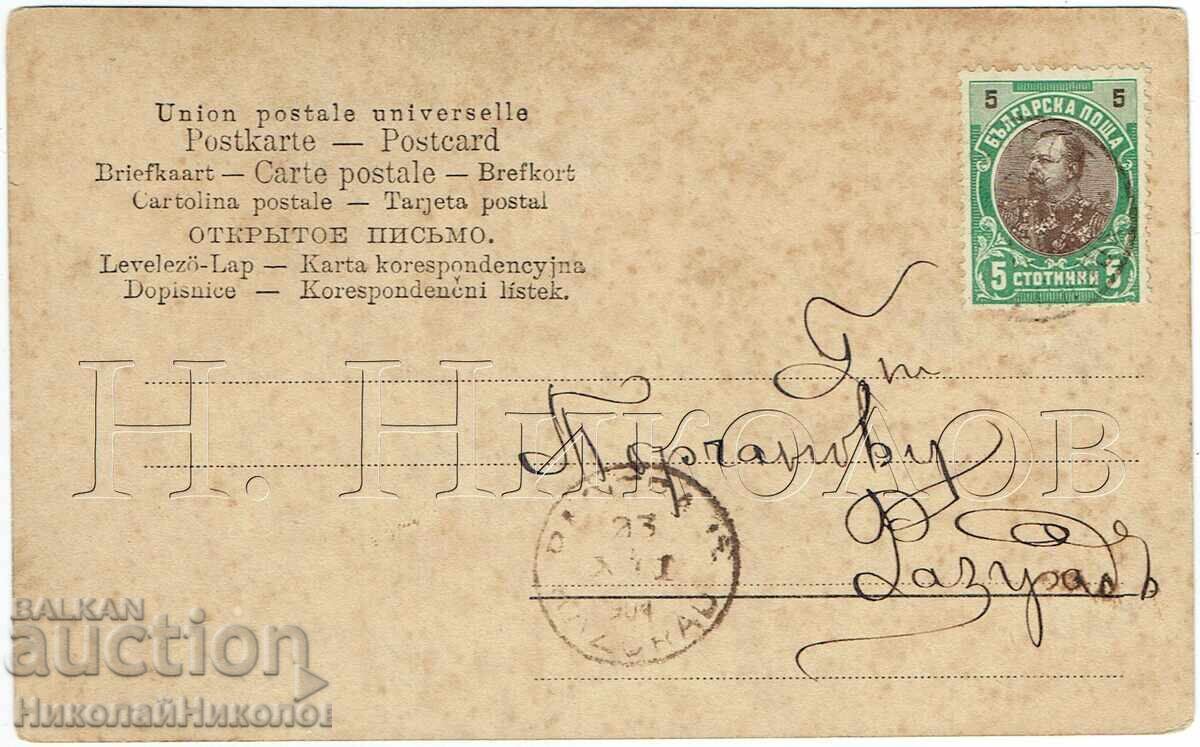 Union postale universelle
Postkarte — Postcard
Briefkaart — Carte postale — Brefkort
Cartolina postale — Tarjeta postal
ОТКРЫТОЕ ПИСЬМО.
Levelező-Lap — Karta korespondencyjna
Dopisnice — Korespondenčni lístek.
5 5
БЪЛГАРСКА ПОЩА
5 СТОТИНКИ 5
Н. Николов
23
RAZGRAD
Разградъ
BALKAN
auction
НиколайНиколов